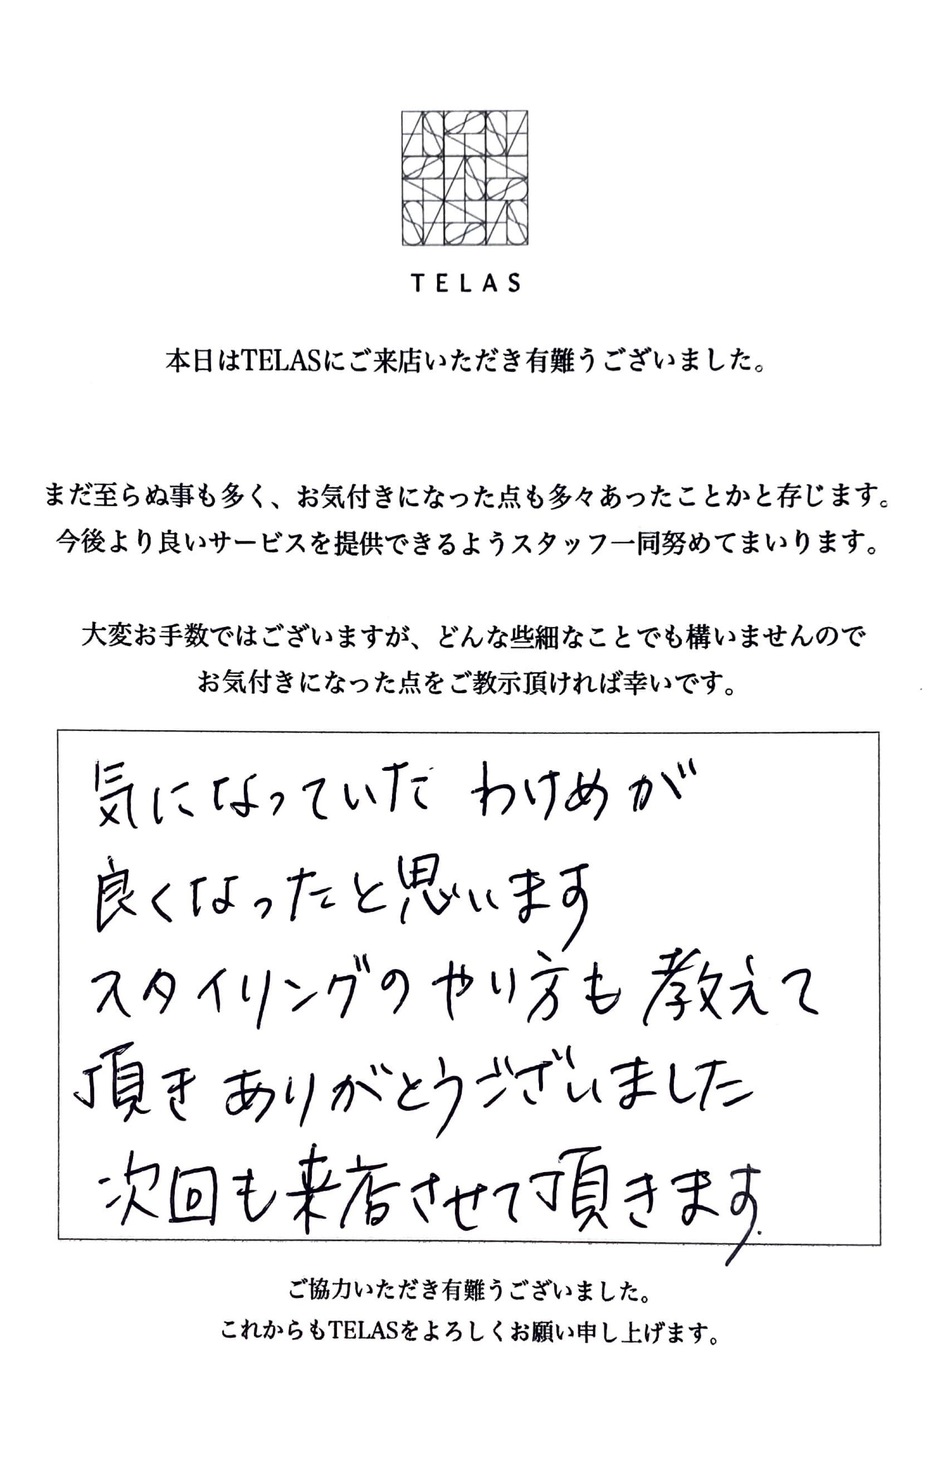 TELAS
本日はTELASにご来店いただき有難うございました。
まだ至らぬ事も多く、お気付きになった点も多々あったことかと存じます。
今後より良いサービスを提供できるようスタッフ一同努めてまいります。
大変お手数ではございますが、どんな些細なことでも構いませんので
お気付きになった点をご教示頂ければ幸いです。
気になっていた わけめが
良くなったと思います
スタイリングのやり方も教えて
頂き ありがとうございました
次回も来店させて頂きます.
ご協力いただき有難うございました。
これからもTELASをよろしくお願い申し上げます。